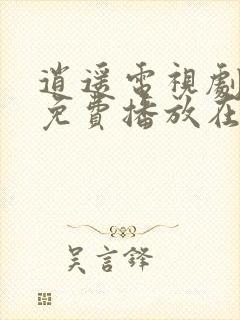 逍遥電視劇
免費播放在
吳言鋒